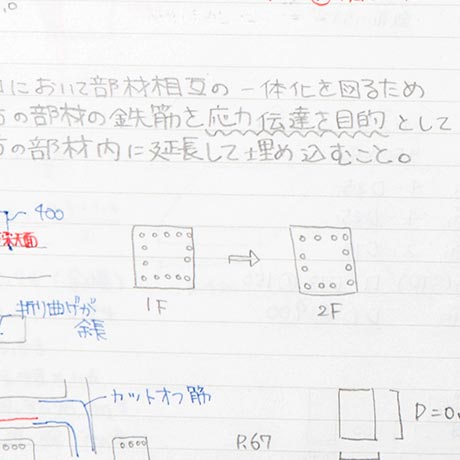 において部材相互の一体化を図るため
の部材の鉄筋を応力伝達を目的として
の部材内に延長して埋め込むこと。
400
1F
2F
折り曲げが
余長
カットオフ筋
P.67
D=0.